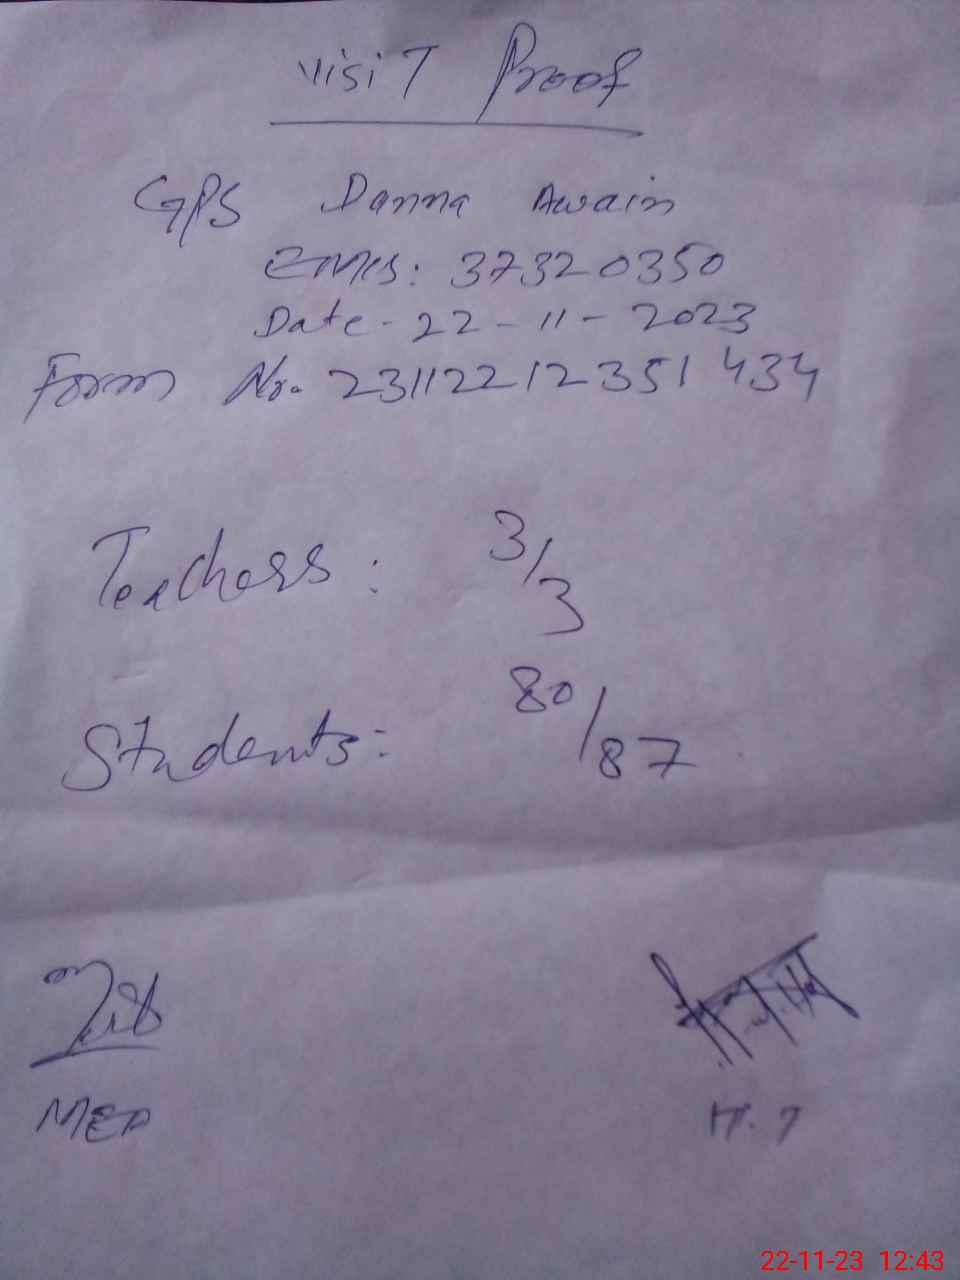 Visit Proof
GPS Danna Awain
EMIS: 37320350
Date - 22 - 11 - 2023
Form No. 23112212351434
Teachers: 3/3
Students: 80/87
MEA
H.T
22-11-23 12:43